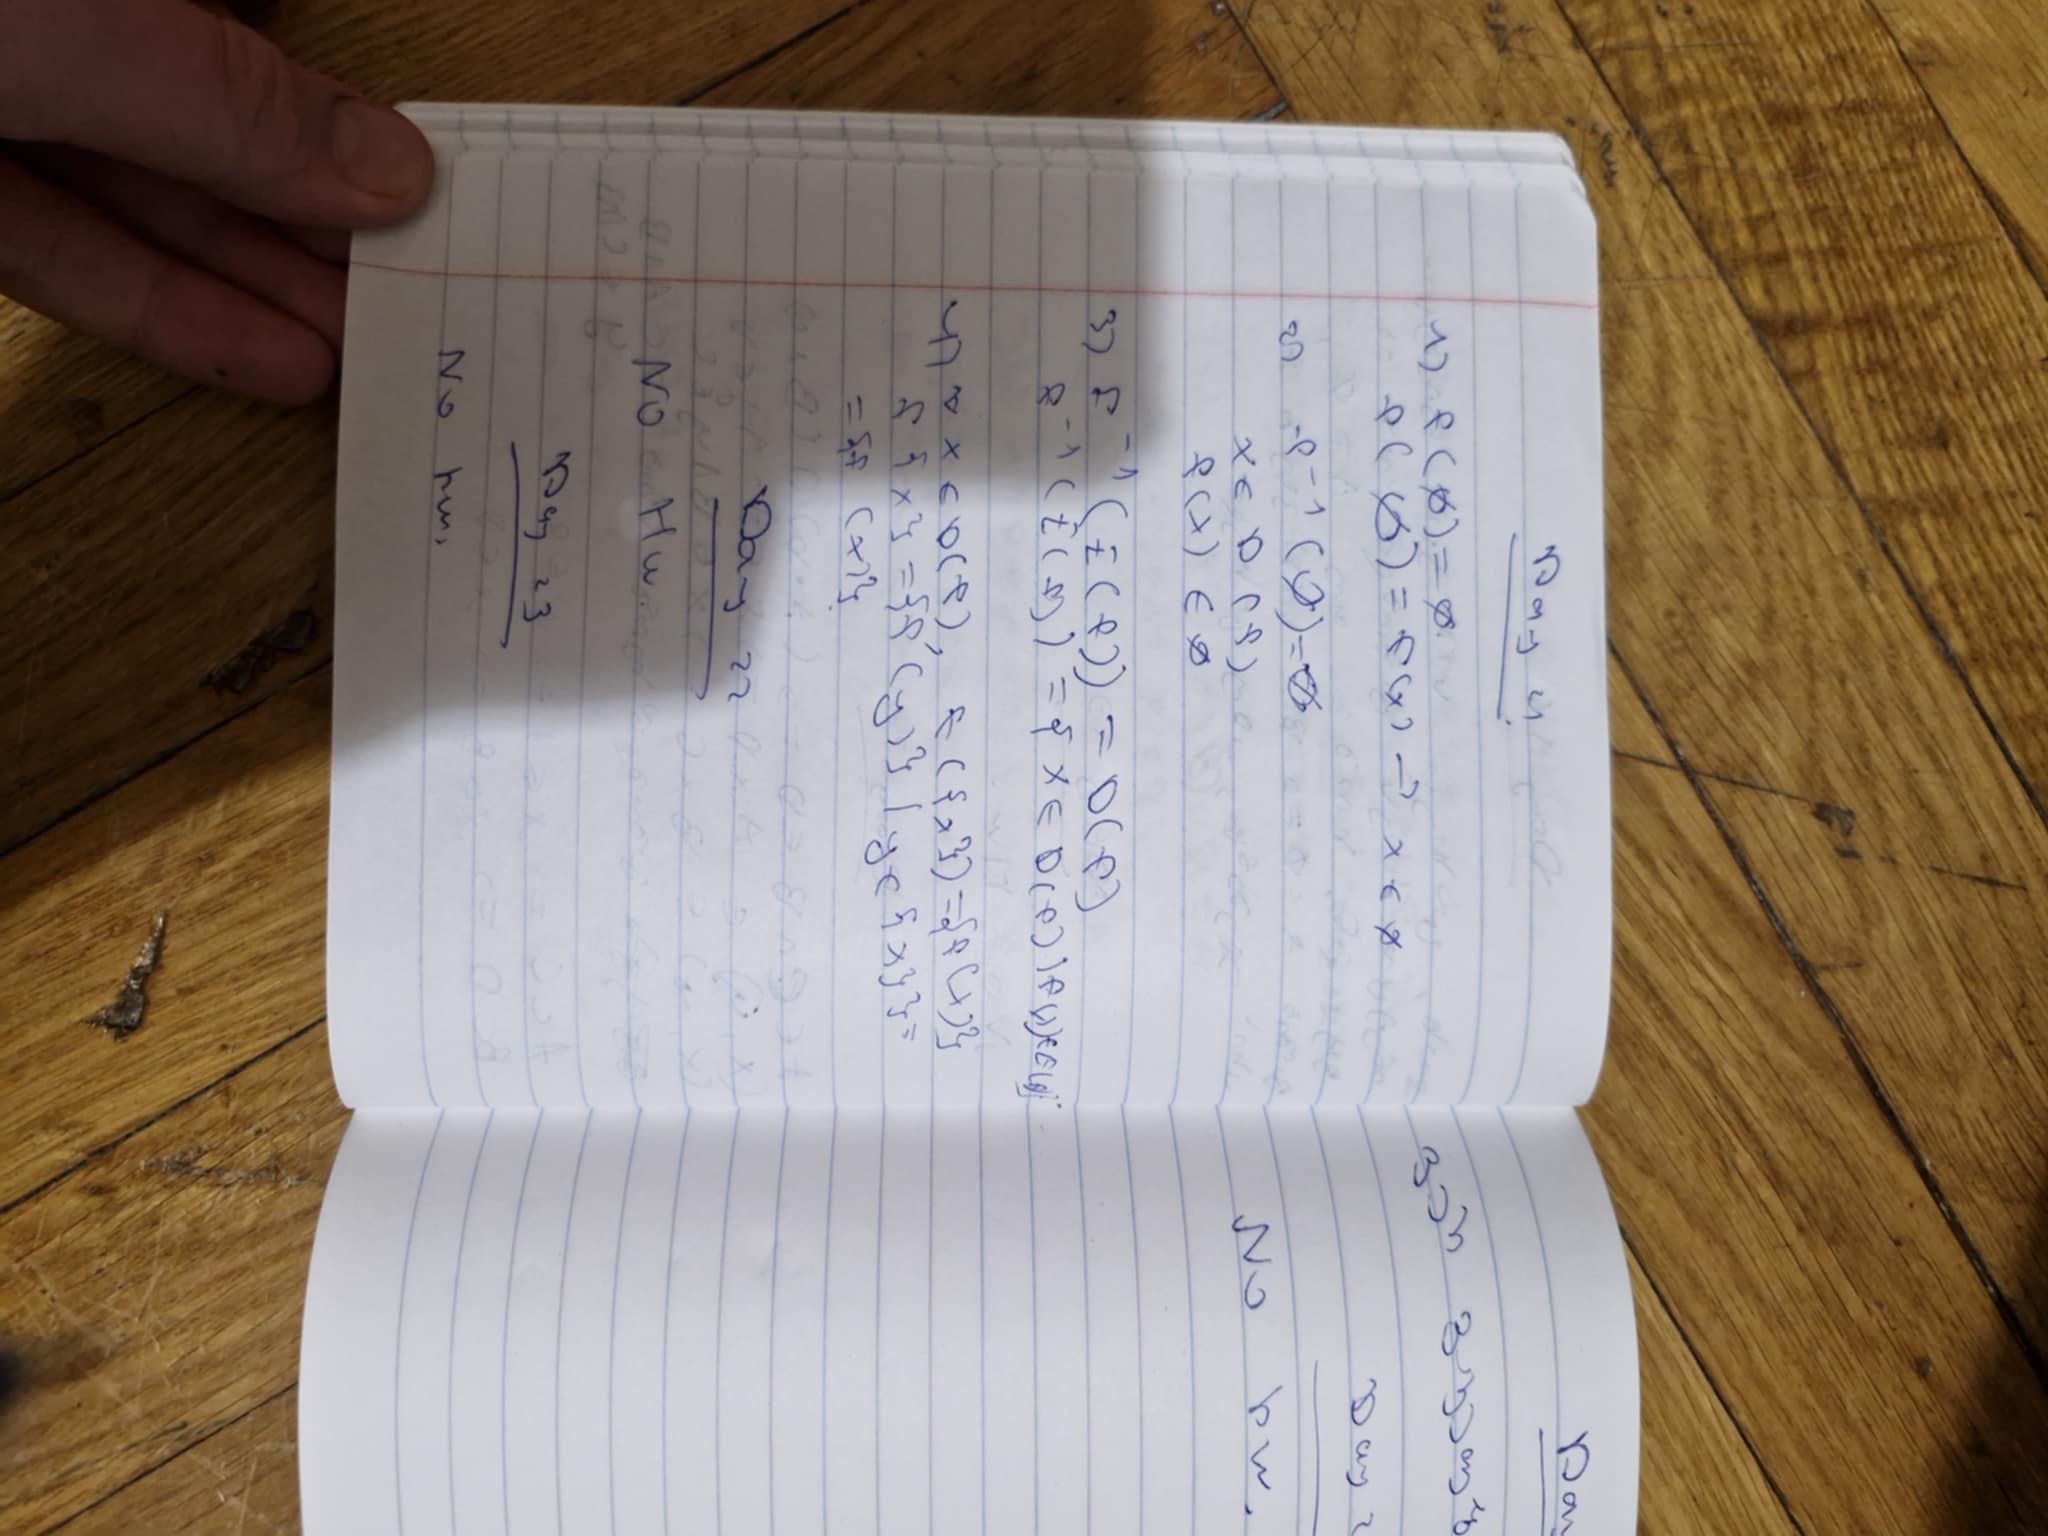 Day 21
1) f(∅)=∅
f(∅) = f(x) → x∈∅
2) f⁻¹(∅)=∅
x∈D(f)
f(x) ∈ ∅
3) f⁻¹(E(f)) = D(f)
f⁻¹(E(f)) = {x∈D(f)|f(x)∈E(f)}
4) ∀x∈D(f), f({x})={f(x)}
f{x}={f(y)}|y∈{x}}=
={f(x)}
Day 22
No Hw
Day 23
No hw.
Day
Day 2
No hw.